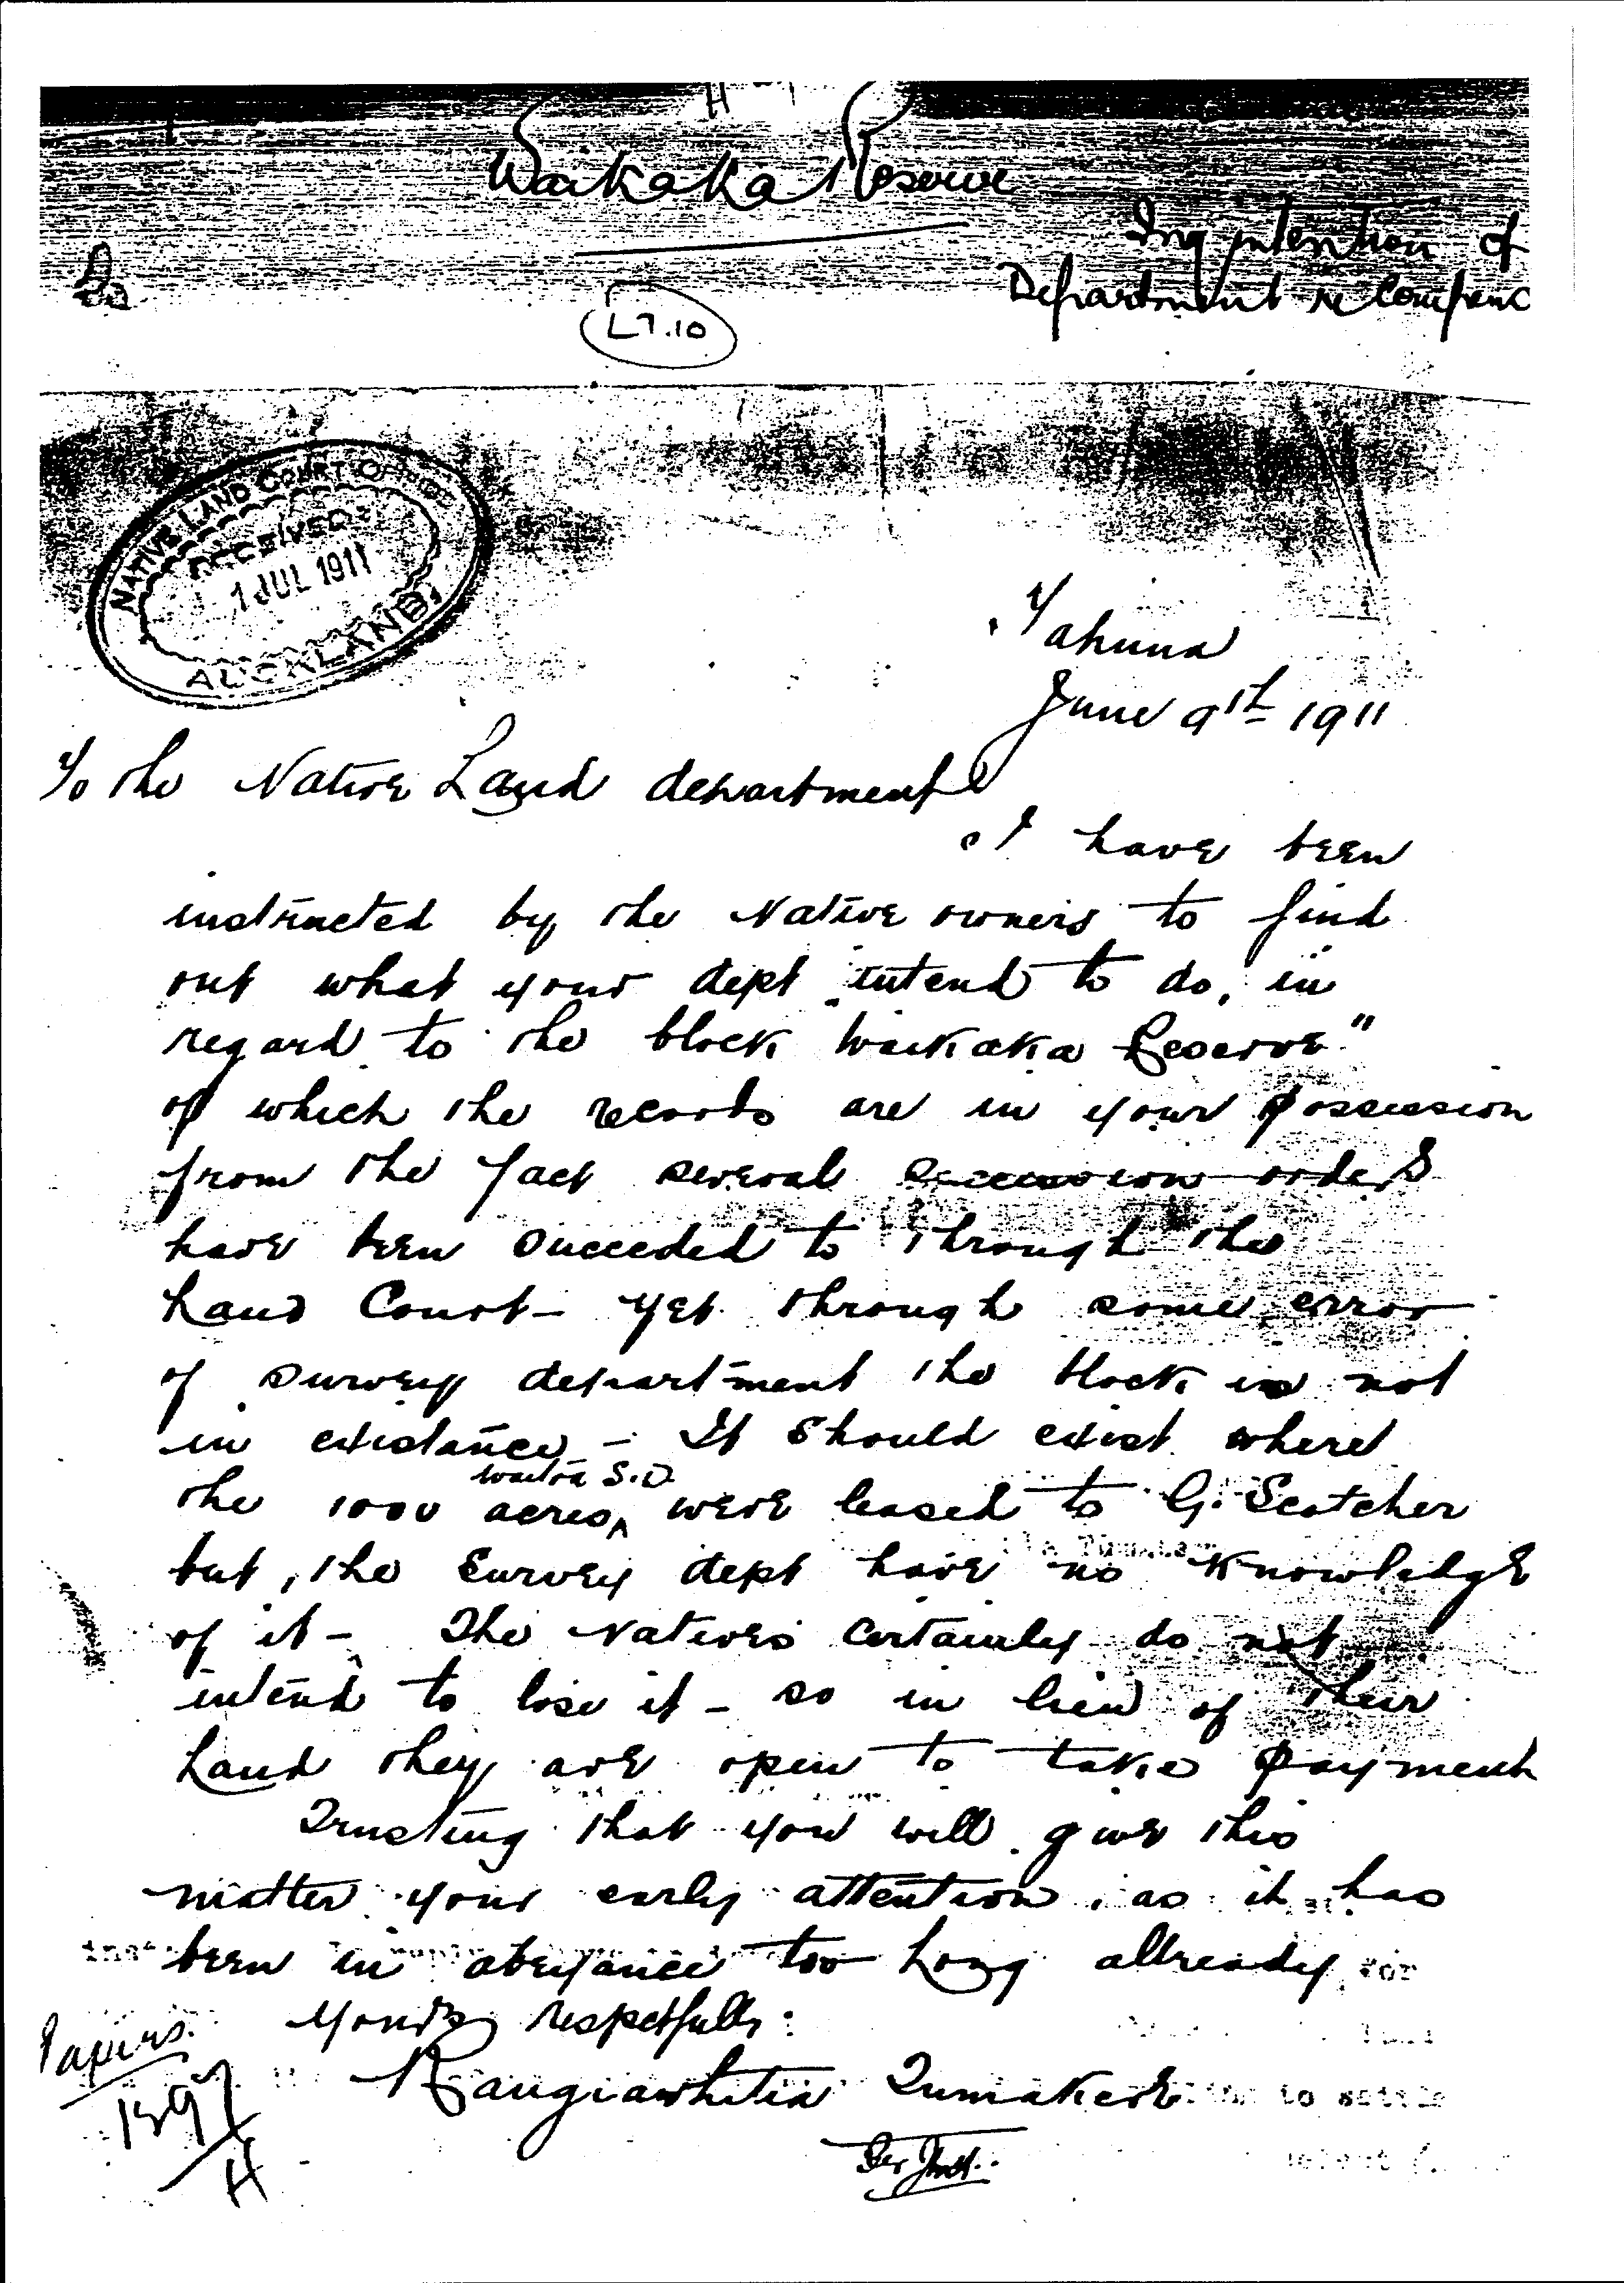 Waikaka Reserve
Inq intention of
Department re Compenc
L7.10
NATIVE LAND COURT
RECEIVED
1 JUL 1911
AUCKLAND
Tahuna
June 9th 1911
To the Native Land department
I have been
instructed by the Native owners to find
out what your dept intend to do, in
regard to the block Waikaka Reserve"
of which the records are in your possession
from the fact several succession orders
have been succeeded to through the
Land Court - yet through some error
of survey department the block is not
in existance - It should exist where
Waitoa S.D.
the 1000 acres ^ were leased to G. Scotcher
but, the Survey dept have no knowledge
of it - The Natives certainly do not
intend to lose it - so in lieu of their
Land they are open to take payment
Trusting that you will give this
matter your early attention, as it has
been in abeyance too Long allready
Yours respetfully
Rangiawhitia Tumakere
Papers
1397
H